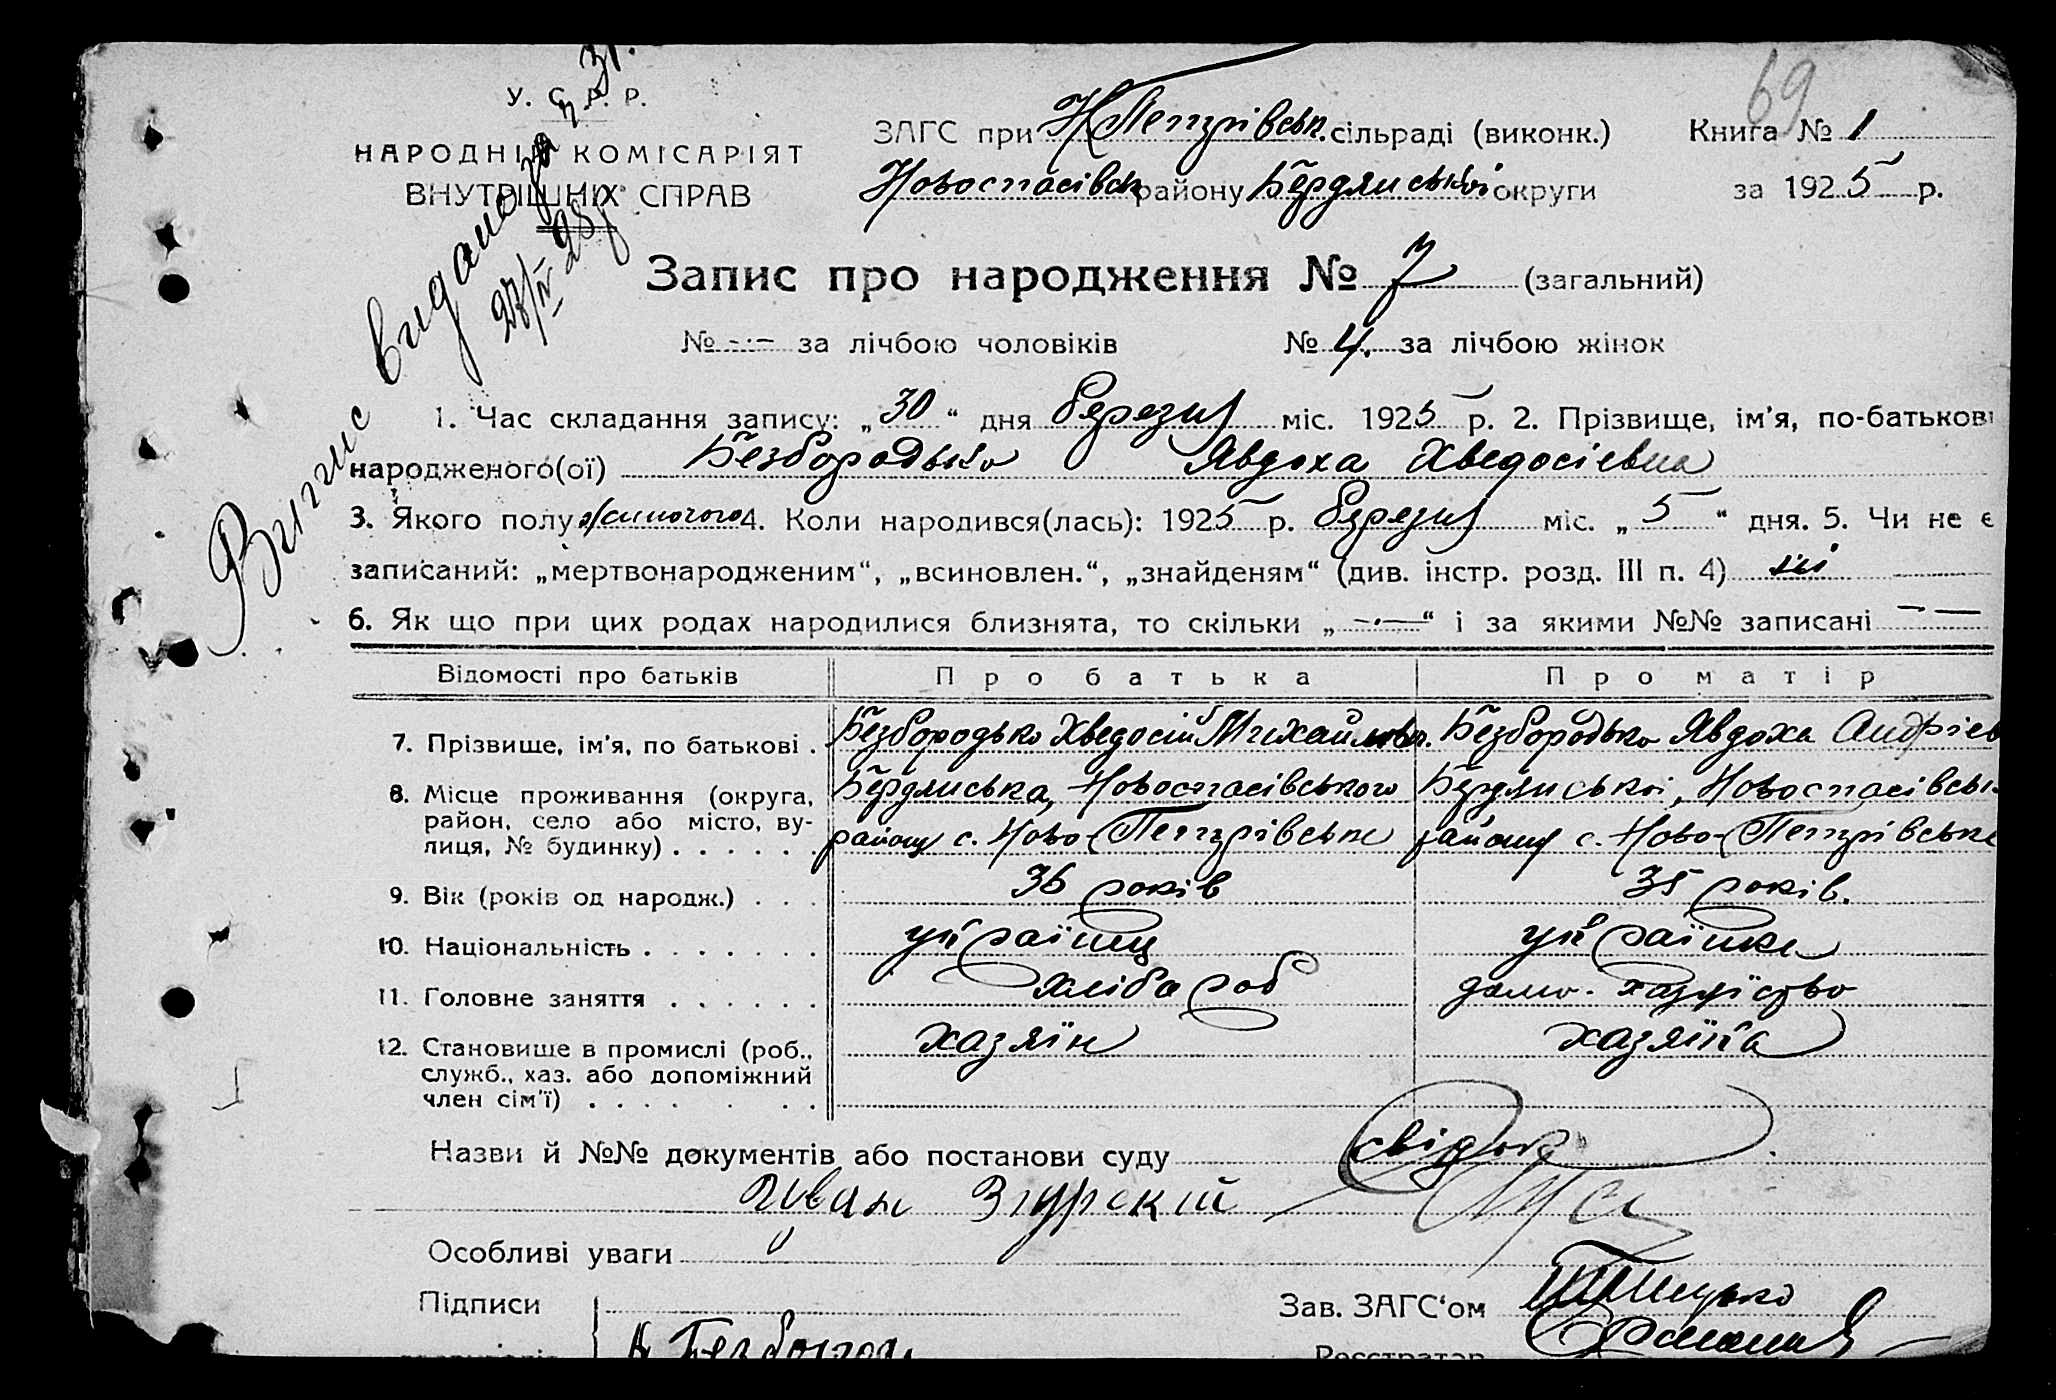 69
У. С. Р. Р.
НАРОДНІЙ КОМІСАРІЯТ
ВНУТРІШНІХ СПРАВ
ЗАГС при Н Петрівськ. сільраді (виконк.) Книга № 1
Новоспасівськ району Бердянської округи за 1925 р.
Випис видано за №
Запис про народження № 7 (загальний)
№ -·- за лічбою чоловіків № 4. за лічбою жінок
1. Час складання запису: „30“ дня березня міс. 1925 р. 2. Прізвище, ім'я, по-батькові
народженого(ої) Безбородько Явдоха Хведосіевна
3. Якого полу жиночого 4. Коли народився(лась): 1925 р. березня міс. „5“ дня. 5. Чи не є
записаний: „мертвонародженим“, „всиновлен.“, „знайденям“ (див. інстр. розд. III п. 4) ні
6. Як що при цих родах народилися близнята, то скільки „-·-“ і за якими №№ записані — —
Відомості про батьків Про батька Про матір
7. Прізвище, ім'я, по батькові . Безбородько Хведосій Михайлов. Безбородько Явдоха Андріев
8. Місце проживання (округа, Бердянська, Новоспасівського Бердянськоі, Новоспасівськ
район, село або місто, ву-
лиця, № будинку) . . . . . . району с. Ново-Петрівське району с. Ново-Петрівське
9. Вік (років од народж.) . . . 36 років 35 років.
10. Національність . . . . . . . українец українка
11. Головне заняття . . . . . . хлібороб домо-хазяїство
12. Становище в промислі (роб., хазяїн хазяїка
служб., хаз. або допоміжний
член сім'ї) . . . . . . .
Назви й №№ документів або постанови суду свідок
Иван Згурский
Особливі уваги
Підписи
Зав. ЗАГС'ом
Реєстратор